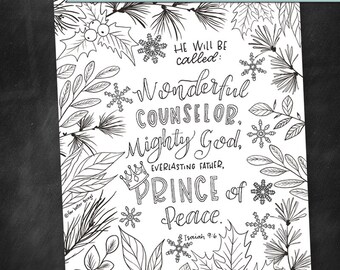 HE WILL BE
called:
Wonderful
COUNSELOR,
Mighty God,
EVERLASTING FATHER,
PRINCE of
Peace.
Isaiah 9:6